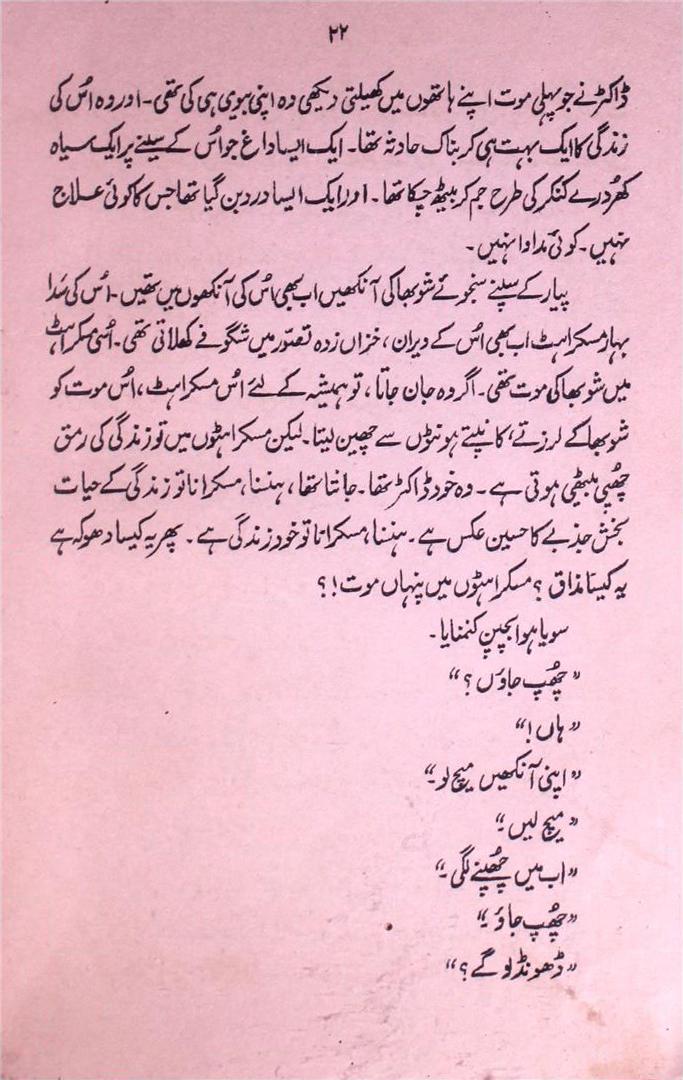 ۲۲
ڈاکٹر نے جو پہلی موت اپنے ہاتھوں میں کھیلتی دیکھی وہ اپنی بیوی ہی کی تھی۔ اور وہ اُس کی
زندگی کا ایک بہت ہی کربناک حادثہ تھا۔ ایک ایسا داغ جو اُس کے سینے پر ایک سیاہ
کھُردرے کنکر کی طرح جم کر بیٹھ چکا تھا۔ اور ایک ایسا درد بن گیا تھا جس کا کوئی علاج
نہیں۔ کوئی مداوا نہیں۔
پیار کے سپنے سنجوئے شوبھا کی آنکھیں اب بھی اُس کی آنکھوں میں تھیں۔ اُس کی سَدا
بہار مسکراہٹ اب بھی اُس کے ویران، خزاں زدہ تصوّر میں شگوفے کھلاتی تھی۔ اُسی مسکراہٹ
میں شوبھا کی موت تھی۔ اگر وہ جان جاتا، تو ہمیشہ کے لئے اُس مسکراہٹ، اُس موت کو
شوبھا کے لرزتے، کانپتے ہونٹوں سے چھین لیتا۔ لیکن مسکراہٹوں میں تو زندگی کی رمق
چھُپی بیٹھی ہوتی ہے۔ وہ خود ڈاکٹر تھا۔ جانتا تھا، ہنسنا، مسکرانا تو زندگی کے حیات
بخش جذبے کا حسین عکس ہے۔ ہنسنا، مسکرانا تو خود زندگی ہے۔ پھر یہ کیسا دھوکہ ہے
یہ کیسا مذاق؟ مسکراہٹوں میں پنہاں موت!؟
سویا ہوا بچپن کنمنایا۔
”چھُپ جاؤں؟“
”ہاں!“
”اپنی آنکھیں میچ لو۔“
”میچ لیں۔“
”اب میں چھُپنے لگی۔“
”چھُپ جاؤ۔“
”ڈھونڈ لو گے؟“